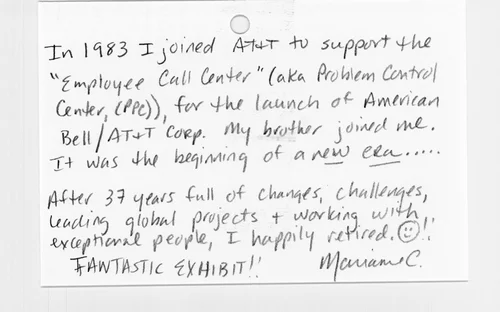 In 1983 I joined AT&T to support the
"Employee Call Center" (aka Problem Control
Center, (PPC)), for the launch of American
Bell/AT&T Corp. My brother joined me.
It was the beginning of a new era.....
After 37 years full of changes, challenges,
leading global projects + working with
exceptional people, I happily retired. ☺!!
FANTASTIC EXHIBIT!!
Mariame C.